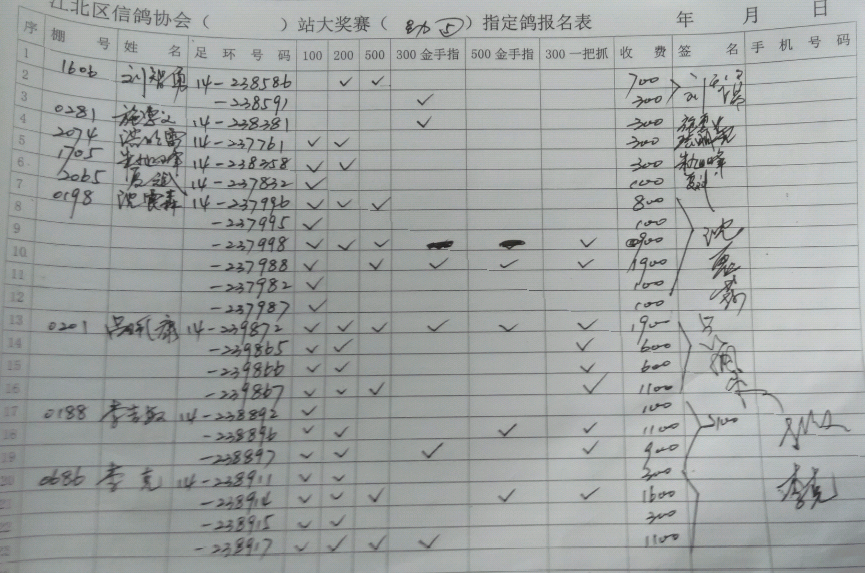 江北区信鸽协会（ ）站大奖赛（ 励⑤ ）指定鸽报名表 年 月 日
序 棚 号 姓 名 足 环 号 码 100 200 500 300 金手指 500 金手指 300 一把抓 收 费 签 名 手 机 号 码
1
2 1606 刘智勇 14-238586 ✓ ✓ 700
3 -238591 ✓ 300
4 0281 14-238381 ✓ 300
5 2074 14-237761 ✓ ✓ 300
6 1705 14-238358 ✓ ✓ 300
7 2065 14-237832 ✓ 100
8 0198 沈震森 14-237996 ✓ ✓ ✓ 800
9 -237995 ✓ 100
10 -237998 ✓ ✓ ✓ ✓ 900
11 -237988 ✓ ✓ ✓ ✓ ✓ 1900
12 -237982 ✓ 100
-237987 ✓ 100
13 0201 14-239872 ✓ ✓ ✓ ✓ ✓ ✓ 1900
14 -239865 ✓ ✓ ✓ 600
15 -239866 ✓ ✓ ✓ 600
16 -239867 ✓ ✓ ✓ ✓ 1100
17 0188 14-238892 ✓ 100
18 -238896 ✓ ✓ ✓ ✓ 1100 2100
19 -238897 ✓ ✓ ✓ ✓ 900
20 0686 李克 14-238911 ✓ ✓ 300
21 -238914 ✓ ✓ ✓ ✓ ✓ 1600 李克
22 -238915 ✓ ✓ 300
23 -238917 ✓ ✓ ✓ ✓ 1100